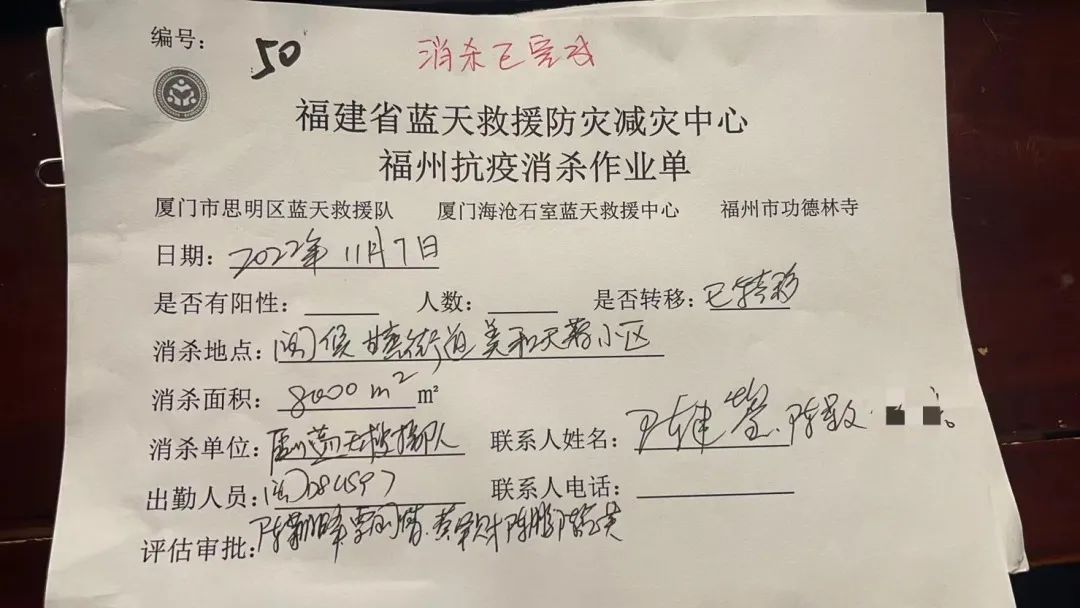 编号： 50
消杀已完成
福建省蓝天救援防灾减灾中心
福州抗疫消杀作业单
厦门市思明区蓝天救援队 厦门海沧石室蓝天救援中心 福州市功德林寺
日期： 2022年11月7日
是否有阳性： 人数： 是否转移： 已转移
消杀地点： 闽侯甘蔗街道美和天著小区
消杀面积： 8000 m² m²
消杀单位： 厦门蓝天救援队 联系人姓名： 陈建莹、陈
出勤人员： 闽D84S97 联系人电话：
评估审批：